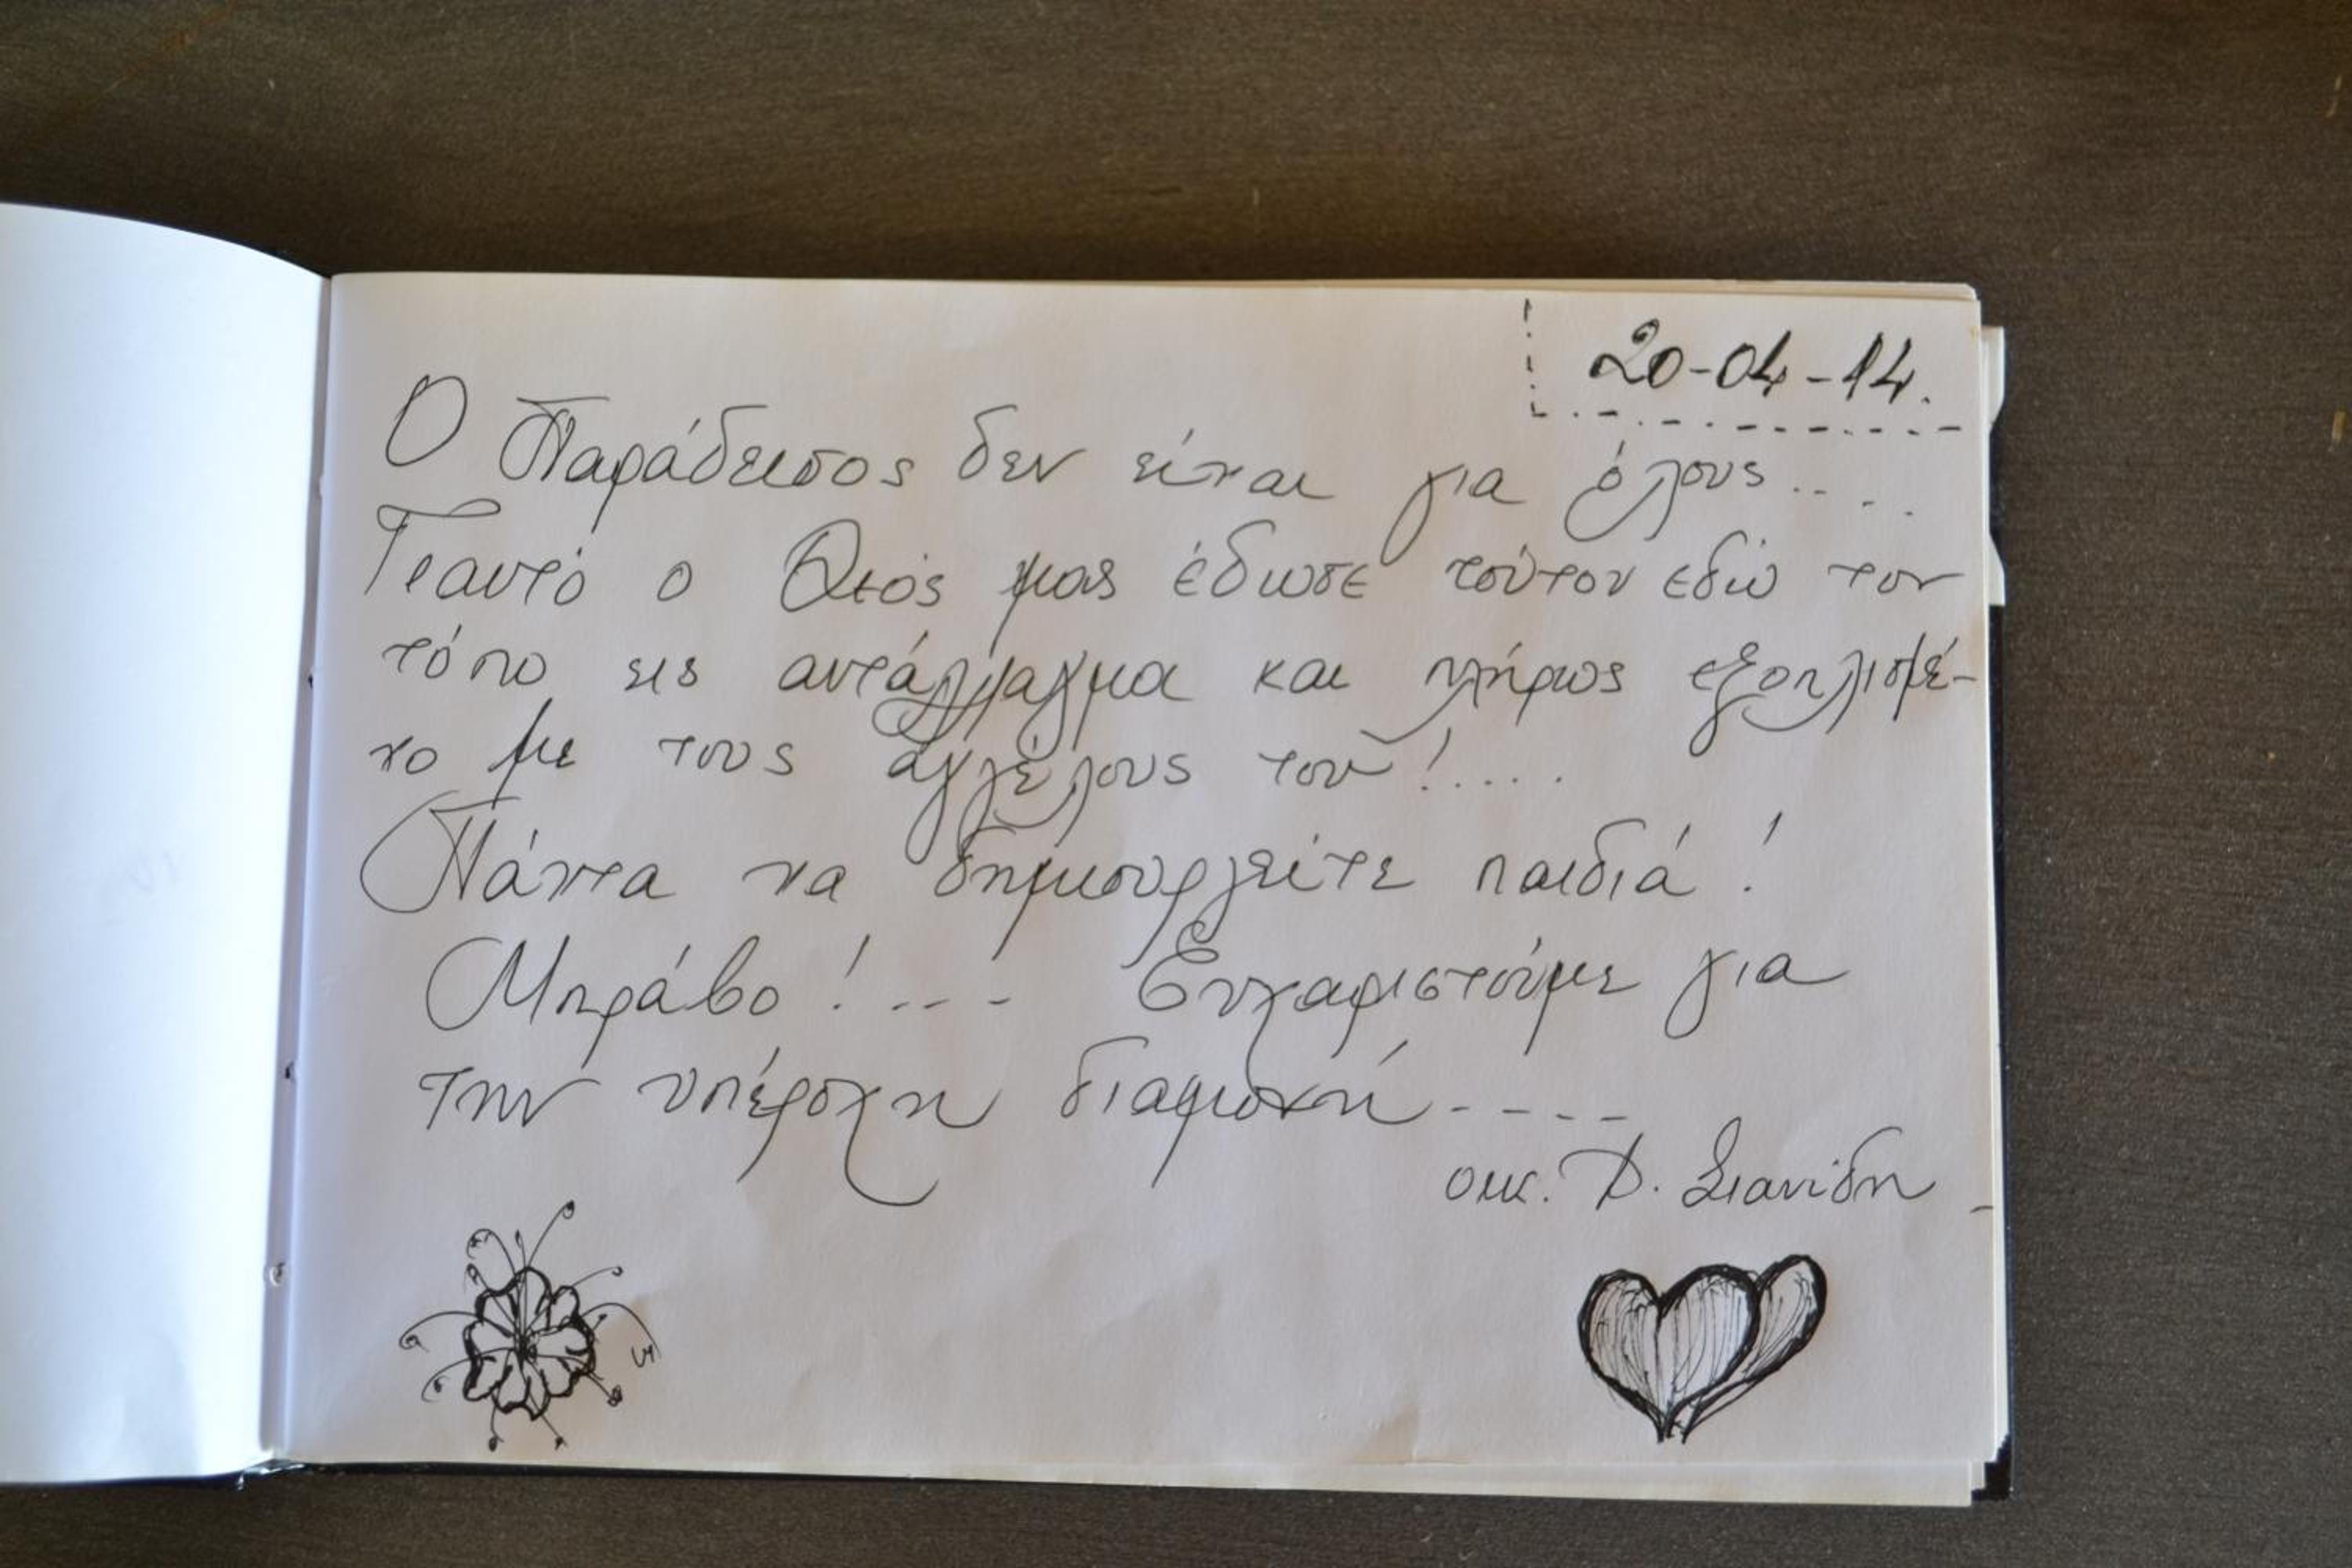 20-04-14.
Ο Παράδεισος δεν είναι για όλους....
Γιαυτό ο Θεός μας έδωσε τούτον εδώ τον
τόπο εις αντάλλαγμα και πλήρως εξοπλισμέ-
νο με τους αγγέλους του!....
Πάντα να δημιουργείτε παιδιά!
Μπράβο!--- Ευχαριστούμε για
την υπέροχη διαμονή----
οικ. Δ. Σιανίδη